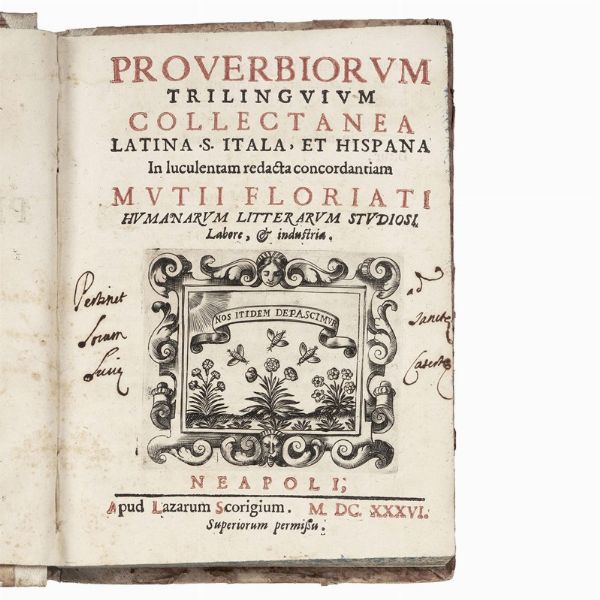 PROVERBIORVM
TRILINGVIVM
COLLECTANEA
LATINA·S. ITALA, ET HISPANA
In luculentam redacta concordantiam
MVTII FLORIATI
HVMANARVM LITTERARVM STVDIOSI.
Labore, & industria.
NOS ITIDEM DEPASCIMVR
Pertinet
ad
NEAPOLI,
Apud Lazarum Scorigium. M. DC. XXXVI.
Superiorum permissu.